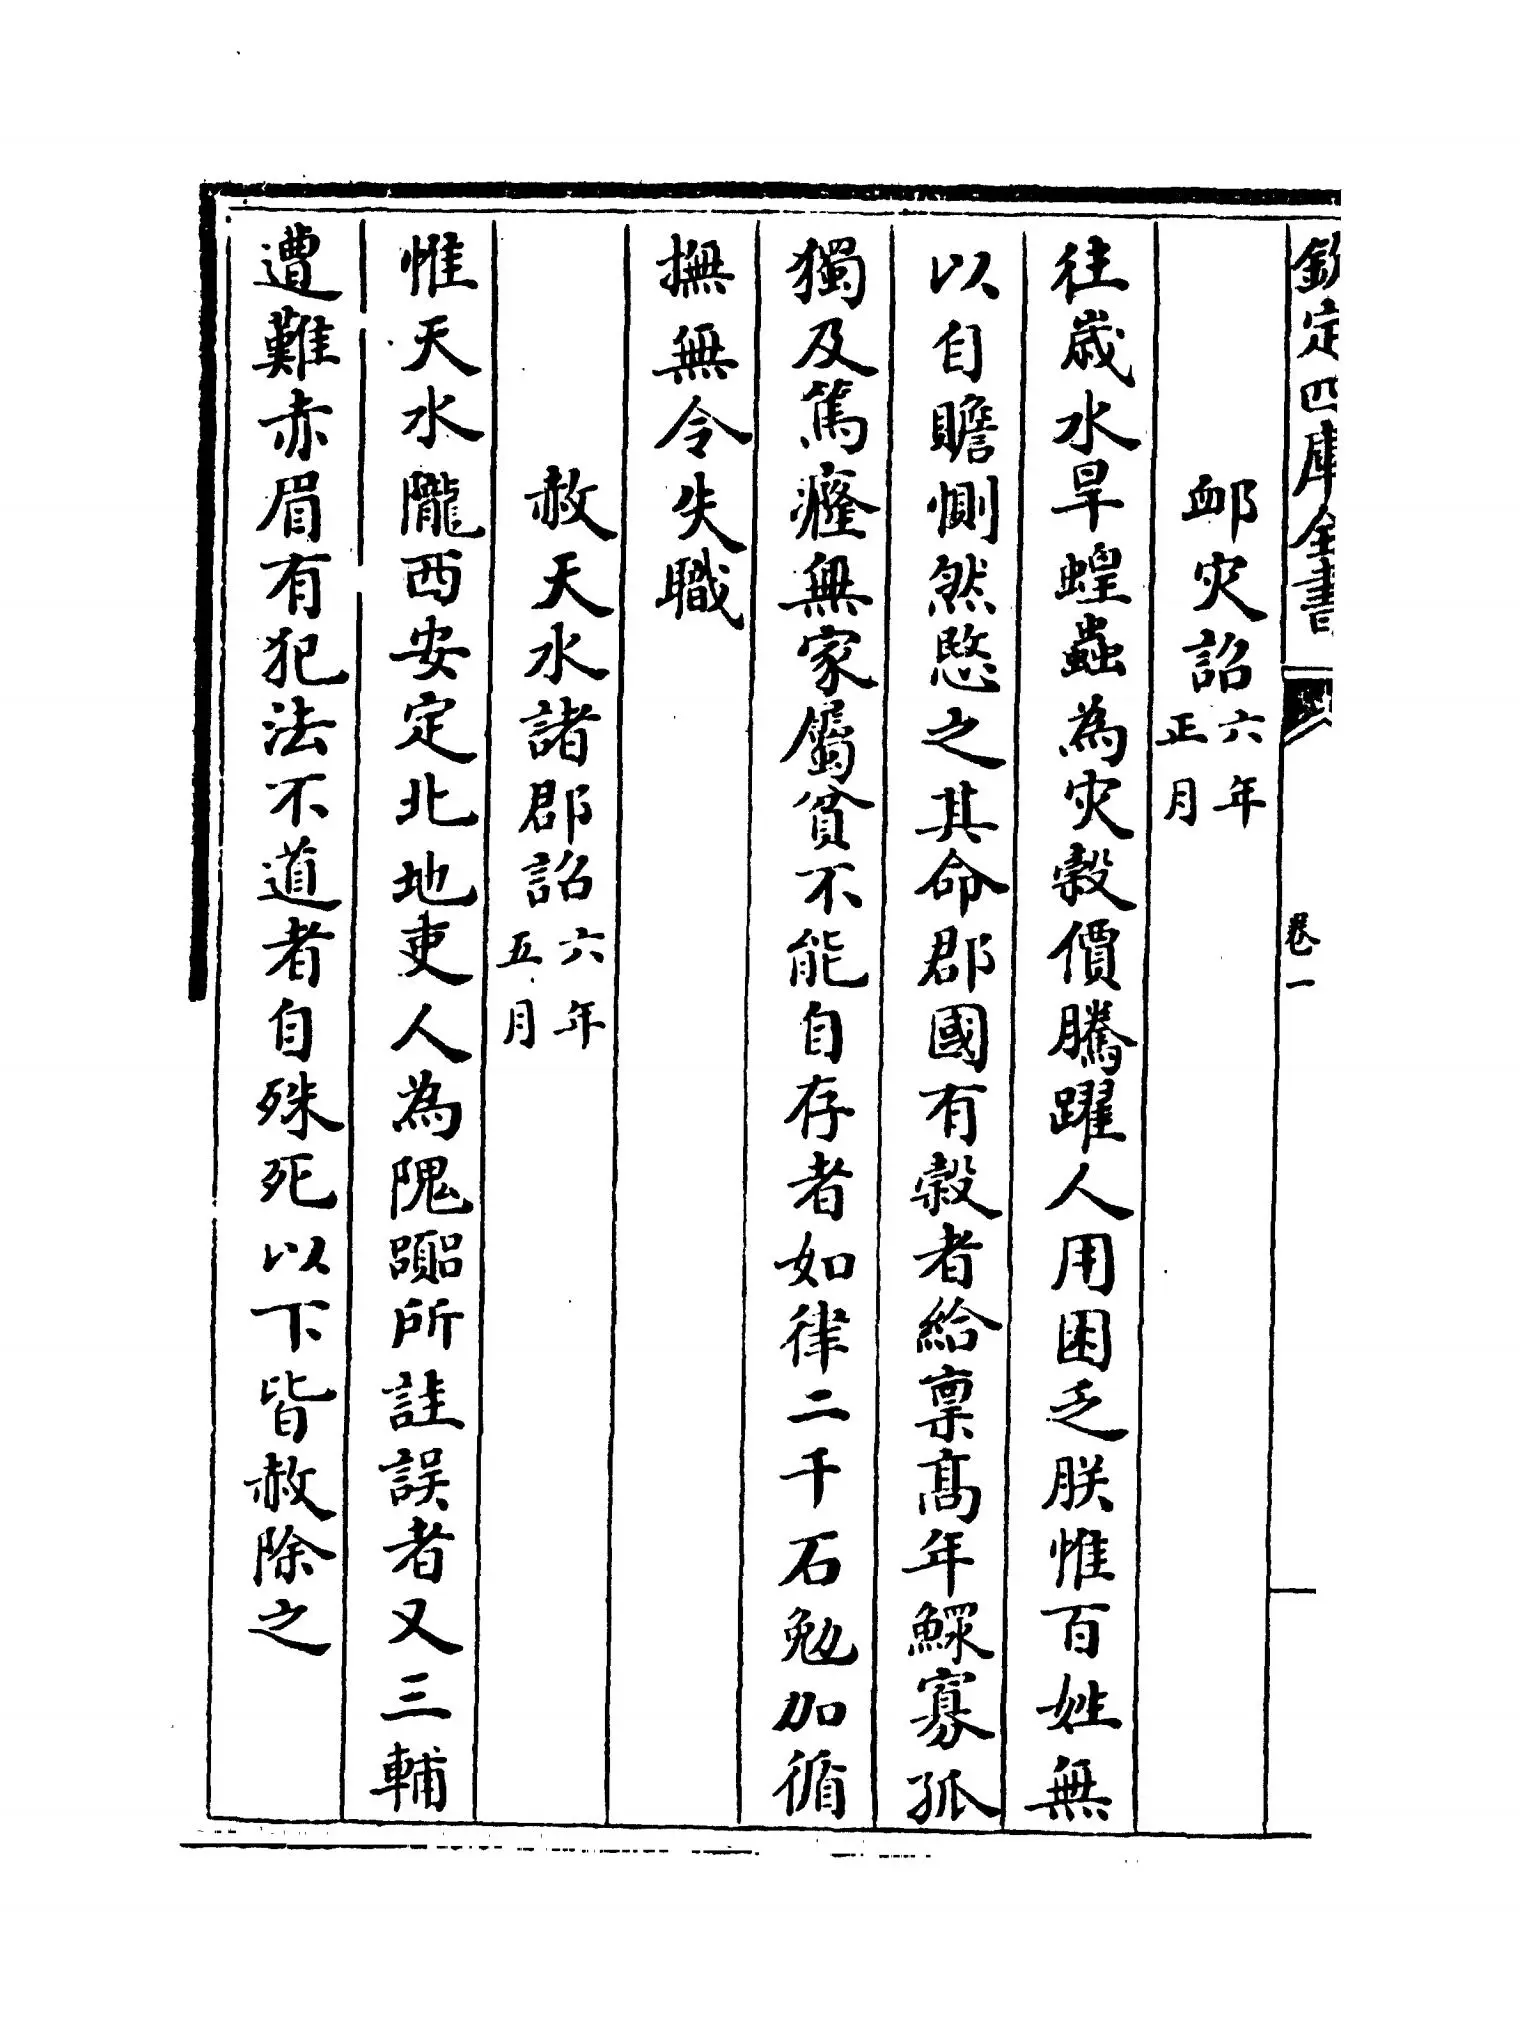 欽定四庫全書
卷一
卹灾詔六年正月
往歲水旱蝗蟲為灾穀價騰躍人用困乏朕惟百姓無
以自贍惻然愍之其命郡國有穀者給稟高年鰥寡孤
獨及篤癃無家屬貧不能自存者如律二千石勉加循
撫無令失職
赦天水諸郡詔六年五月
惟天水隴西安定北地吏人為隗囂所詿誤者又三輔
遭難赤眉有犯法不道者自殊死以下皆赦除之